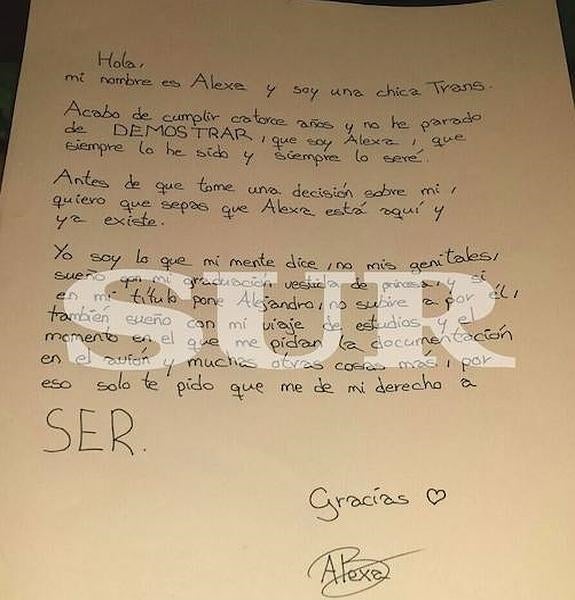 Hola,
mi nombre es Alexa y soy una chica Trans.
Acabo de cumplir catorce años y no he parado
de DEMOSTRAR, que soy Alexa, que
siempre lo he sido y siempre lo seré.
Antes de que tome una decisión sobre mi,
quiero que sepas que Alexa está aquí y
ya existe.
Yo soy lo que mi mente dice, no mis genitales,
sueño con mi graduación vestida de princesa, y si
en mi título pone Alejandro, no subire a por él,
también sueño con mi viaje de estudios y el
momento en el que me pidan la documentación
en el avión y muchas otras cosas más, por
eso solo te pido que me de mi derecho a
SER.
Gracias ♡
Alexa
SUR